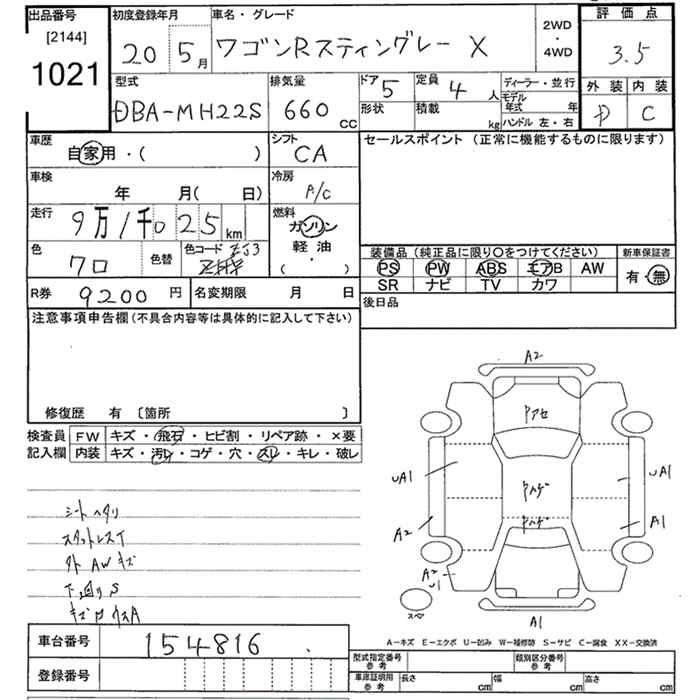 出品番号 初度登録年月 車名・グレード 2WD・4WD 評価点
[2144] 1021
20 5月 ワゴンRスティングレー X 3.5
型式 排気量 ドア 5 定員 4人 ディーラー・並行 外装 内装
DBA-MH22S 660cc 形状 積載 kg モデル年式 年 ハンドル 左・右 D C
車歴 シフト セールスポイント (正常に機能するものに限ります)
自家用・( ) CA
車検 冷房
年 月( 日) A/C
走行 燃料
9万1千025km ガソリン
色 色替 色コード ZJ3 軽油
クロ ( ・ )
装備品(純正品に限り○をつけてください) 新車保証書
PS PW ABS エアB AW 有・無
SR ナビ TV カワ
R券 9200円 名変期限 月 日 後日品
注意事項申告欄(不具合内容等は具体的に記入して下さい)
修復歴 有 〔箇所 〕
検査員 FW キズ・飛石・ヒビ割・リペア跡・×要
記入欄 内装 キズ・汚レ・コゲ・穴・スレ・キレ・破レ
シートヘタリ
スタットレスT
外AWキズ
下回りS
A2
アセ
UA1 ハゲ UA1
ハゲ
A2 A1
A2
U1
スペ
A1
A-キズ E-エクボ U-凹み W-補修跡 S-サビ C-腐食 XX-交換済
車台番号 154816
登録番号
型式指定番号参考 類別区分番号参考
車庫証明用参考 長さ cm 幅 cm 高さ cm